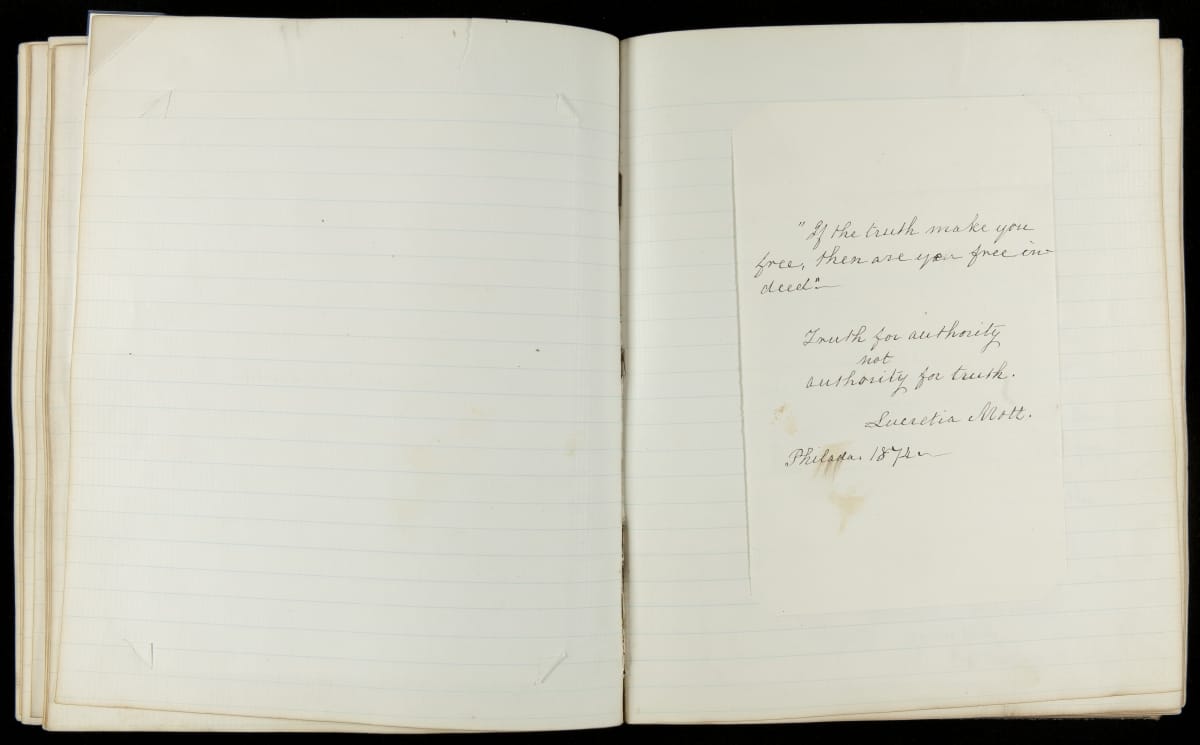 "If the truth make you
free, then are you free in-
deed."—
Truth for authority
not
authority for truth.
Lucretia Mott.
Philada. 1872—